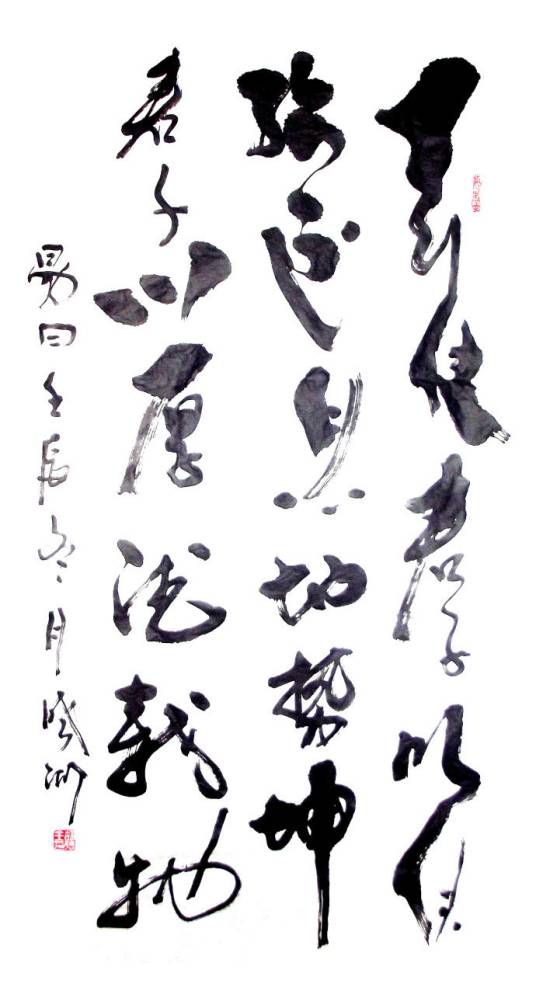 天行健君子以自
強不息地勢坤
君子以厚德載物
易曰壬辰冬月